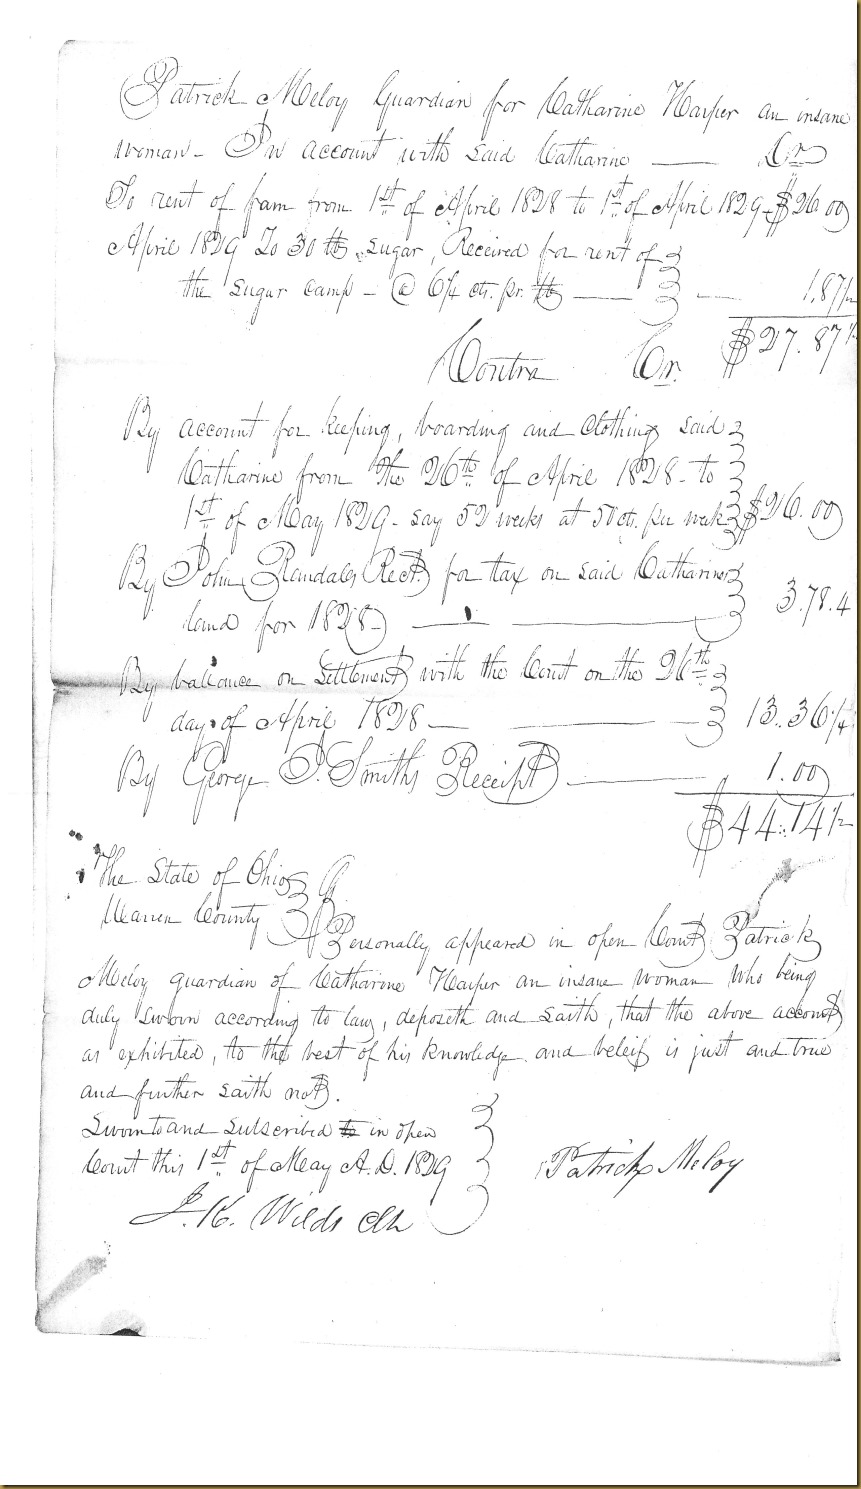 Patrick Meloy Guardian for Catharine Harper an insane
woman - In account with said Catharine — Dr
To rent of fram from 1st of April 1828 to 1st of April 1829 - $26.00
April 1829 To 30 lb sugar, Received for rent of
the sugar camp - @ 6¼ cts. pr. lb — — 1.87½
$27.87½
Contra Cr.
By account for keeping, boarding and clothing said
Catharine from the 26th of April 1828 - to
1st of May 1829 - say 52 weeks at 50 cts. per week $26.00
By John Randales Rect. for tax on said Catharines
land for 1828 — — 3.78.4
By ballance on Settlement with the Court on the 26th
day of April 1828 — — — 13.36¼
By George P. Smiths Receipt — 1.00
$44.14½
The State of Ohio
Warren County
Personally appeared in open Court Patrick
Meloy guardian of Catharine Harper an insane woman who being
duly sworn according to law, deposeth and saith, that the above account
as exhibited, to the best of his knowledge and beleif is just and true
and further saith not.
Sworn to and subscribed to in open
Court this 1st of May A.D. 1829 Patrick Meloy
J. K. Wilds Clk